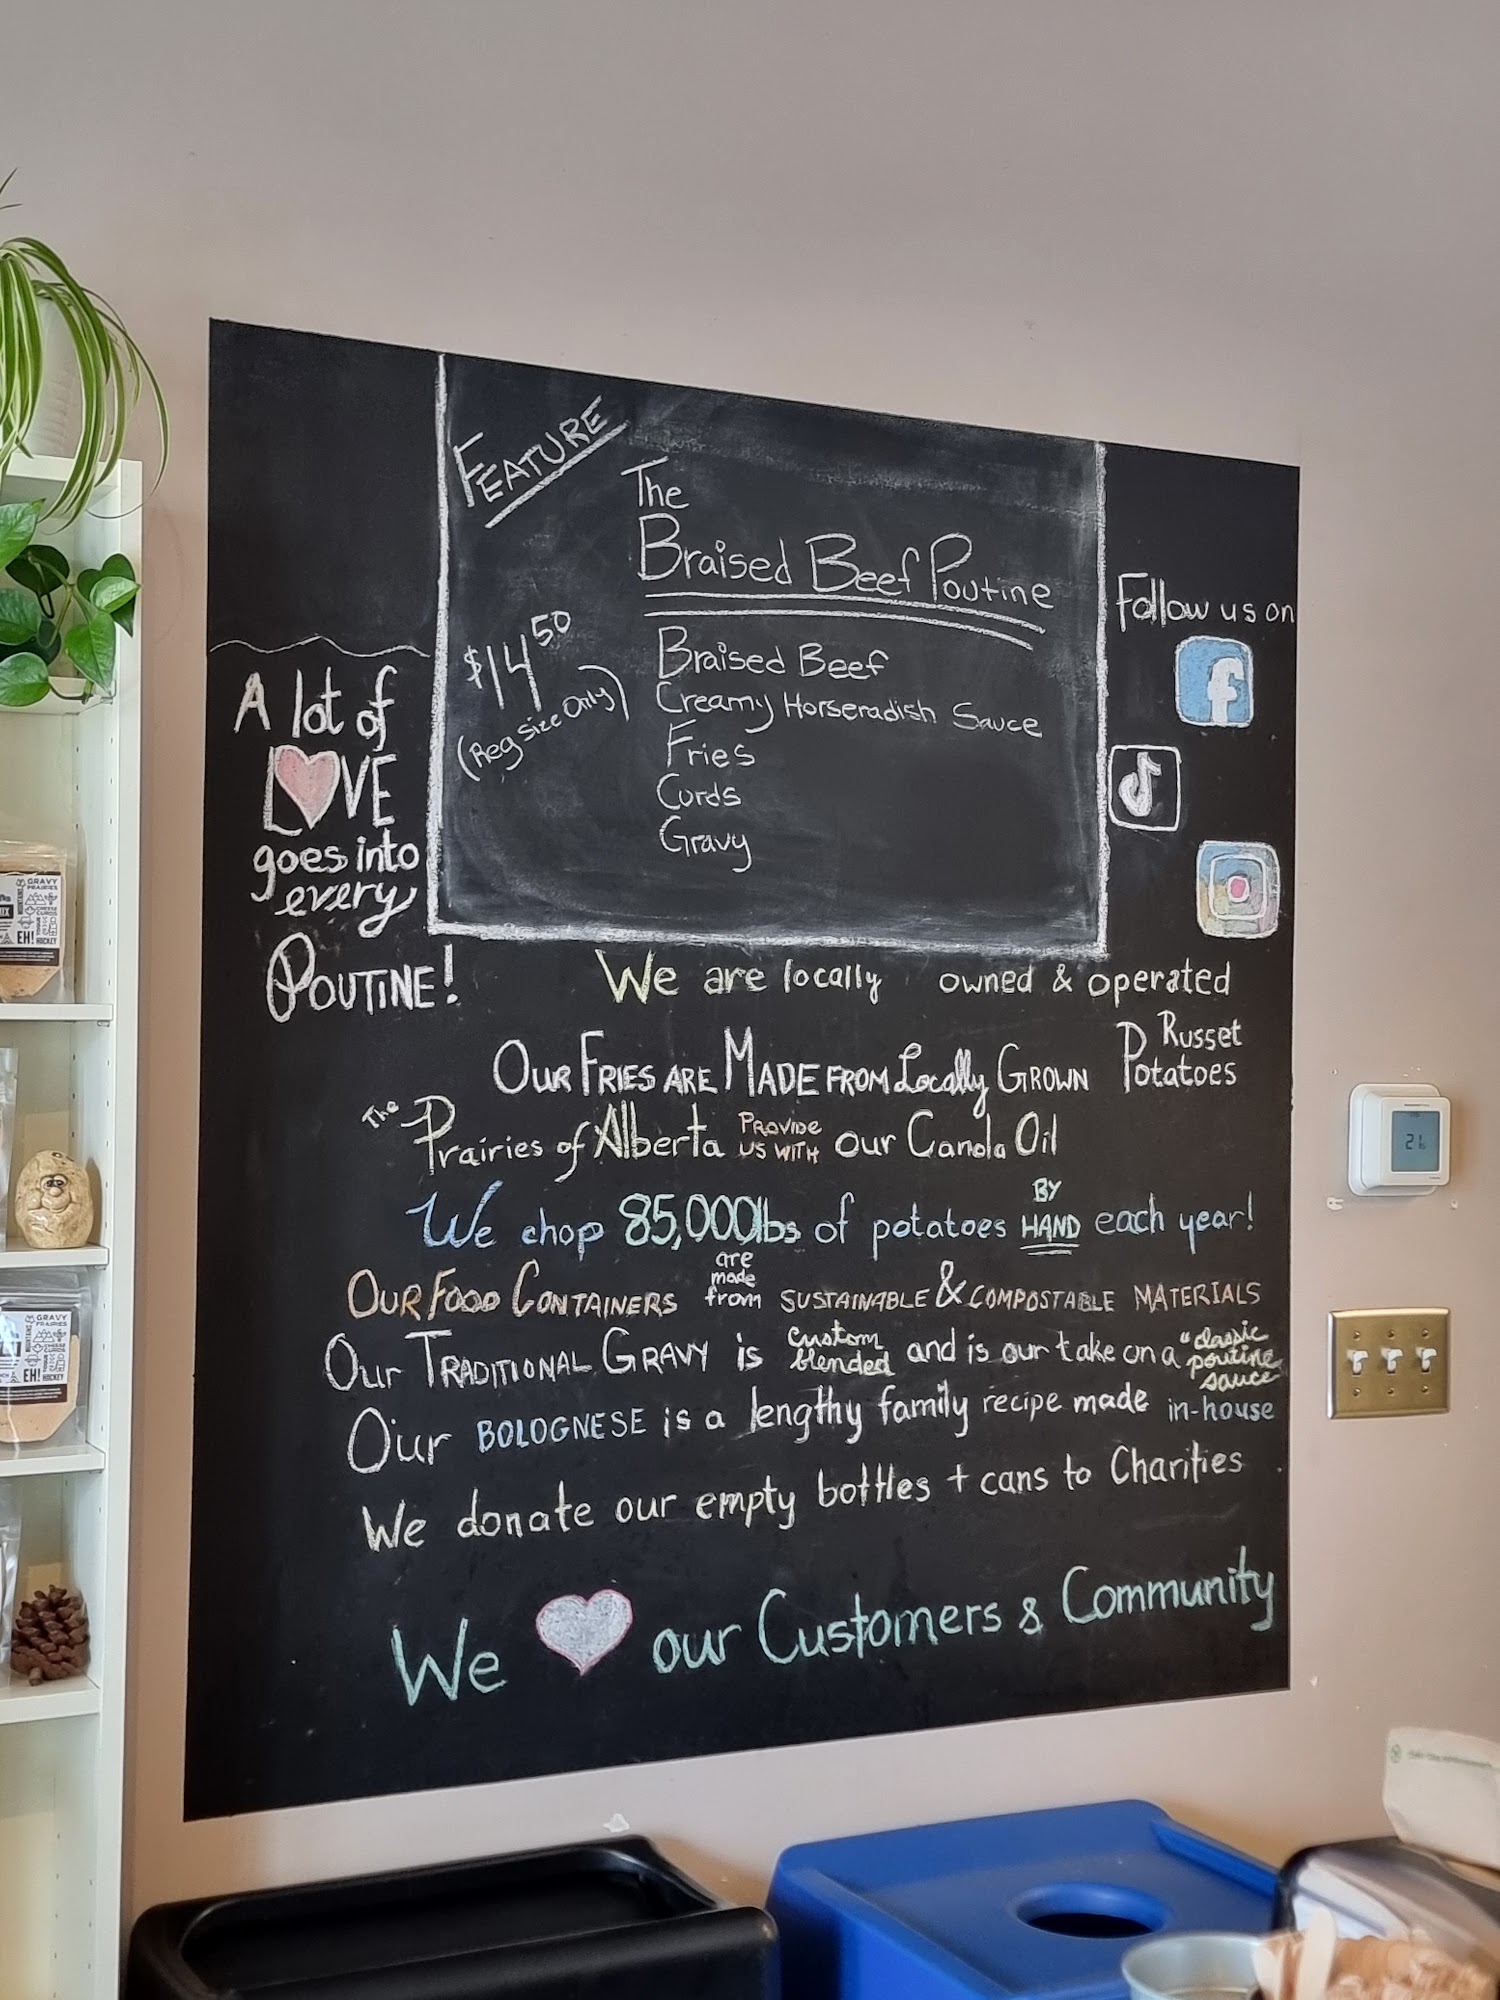 FEATURE
The
Braised Beef Poutine
$14 50
(Reg size Only)
Braised Beef
Creamy Horseradish Sauce
Fries
Curds
Gravy
Follow us on
A lot of
LOVE
goes into
every
POUTINE!
We are locally owned & operated
OUR FRIES ARE MADE FROM Locally GROWN Russet Potatoes
The Prairies of Alberta PROVIDE US WITH our Canola Oil
We chop 85,000lbs of potatoes BY HAND each year!
OUR FOOD CONTAINERS are made from SUSTAINABLE & COMPOSTABLE MATERIALS
Our TRADITIONAL GRAVY is custom blended and is our take on a "classic poutine sauce"
Our BOLOGNESE is a lengthy family recipe made in-house
We donate our empty bottles + cans to Charities
We our Customers & Community
GRAVY
PRAIRIES
EH!
HOCKEY
GRAVY
PRAIRIES
EH!
HOCKEY
21